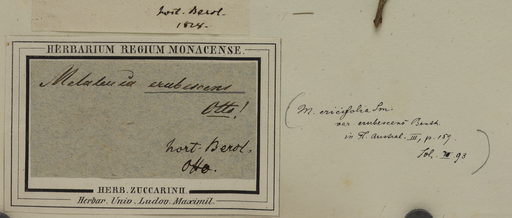 hort. Berol.
1828.
HERBARIUM REGIUM MONACENSE.
Melaleuca erubescens
Otto!
hort. Berol.
Otto.
HERB. ZUCCARINII
Herbar. Univ. Ludov. Maximil.
(M. ericifolia Sm.
var erubescens Benth.
in Fl. Austral. III, p. 159
93)